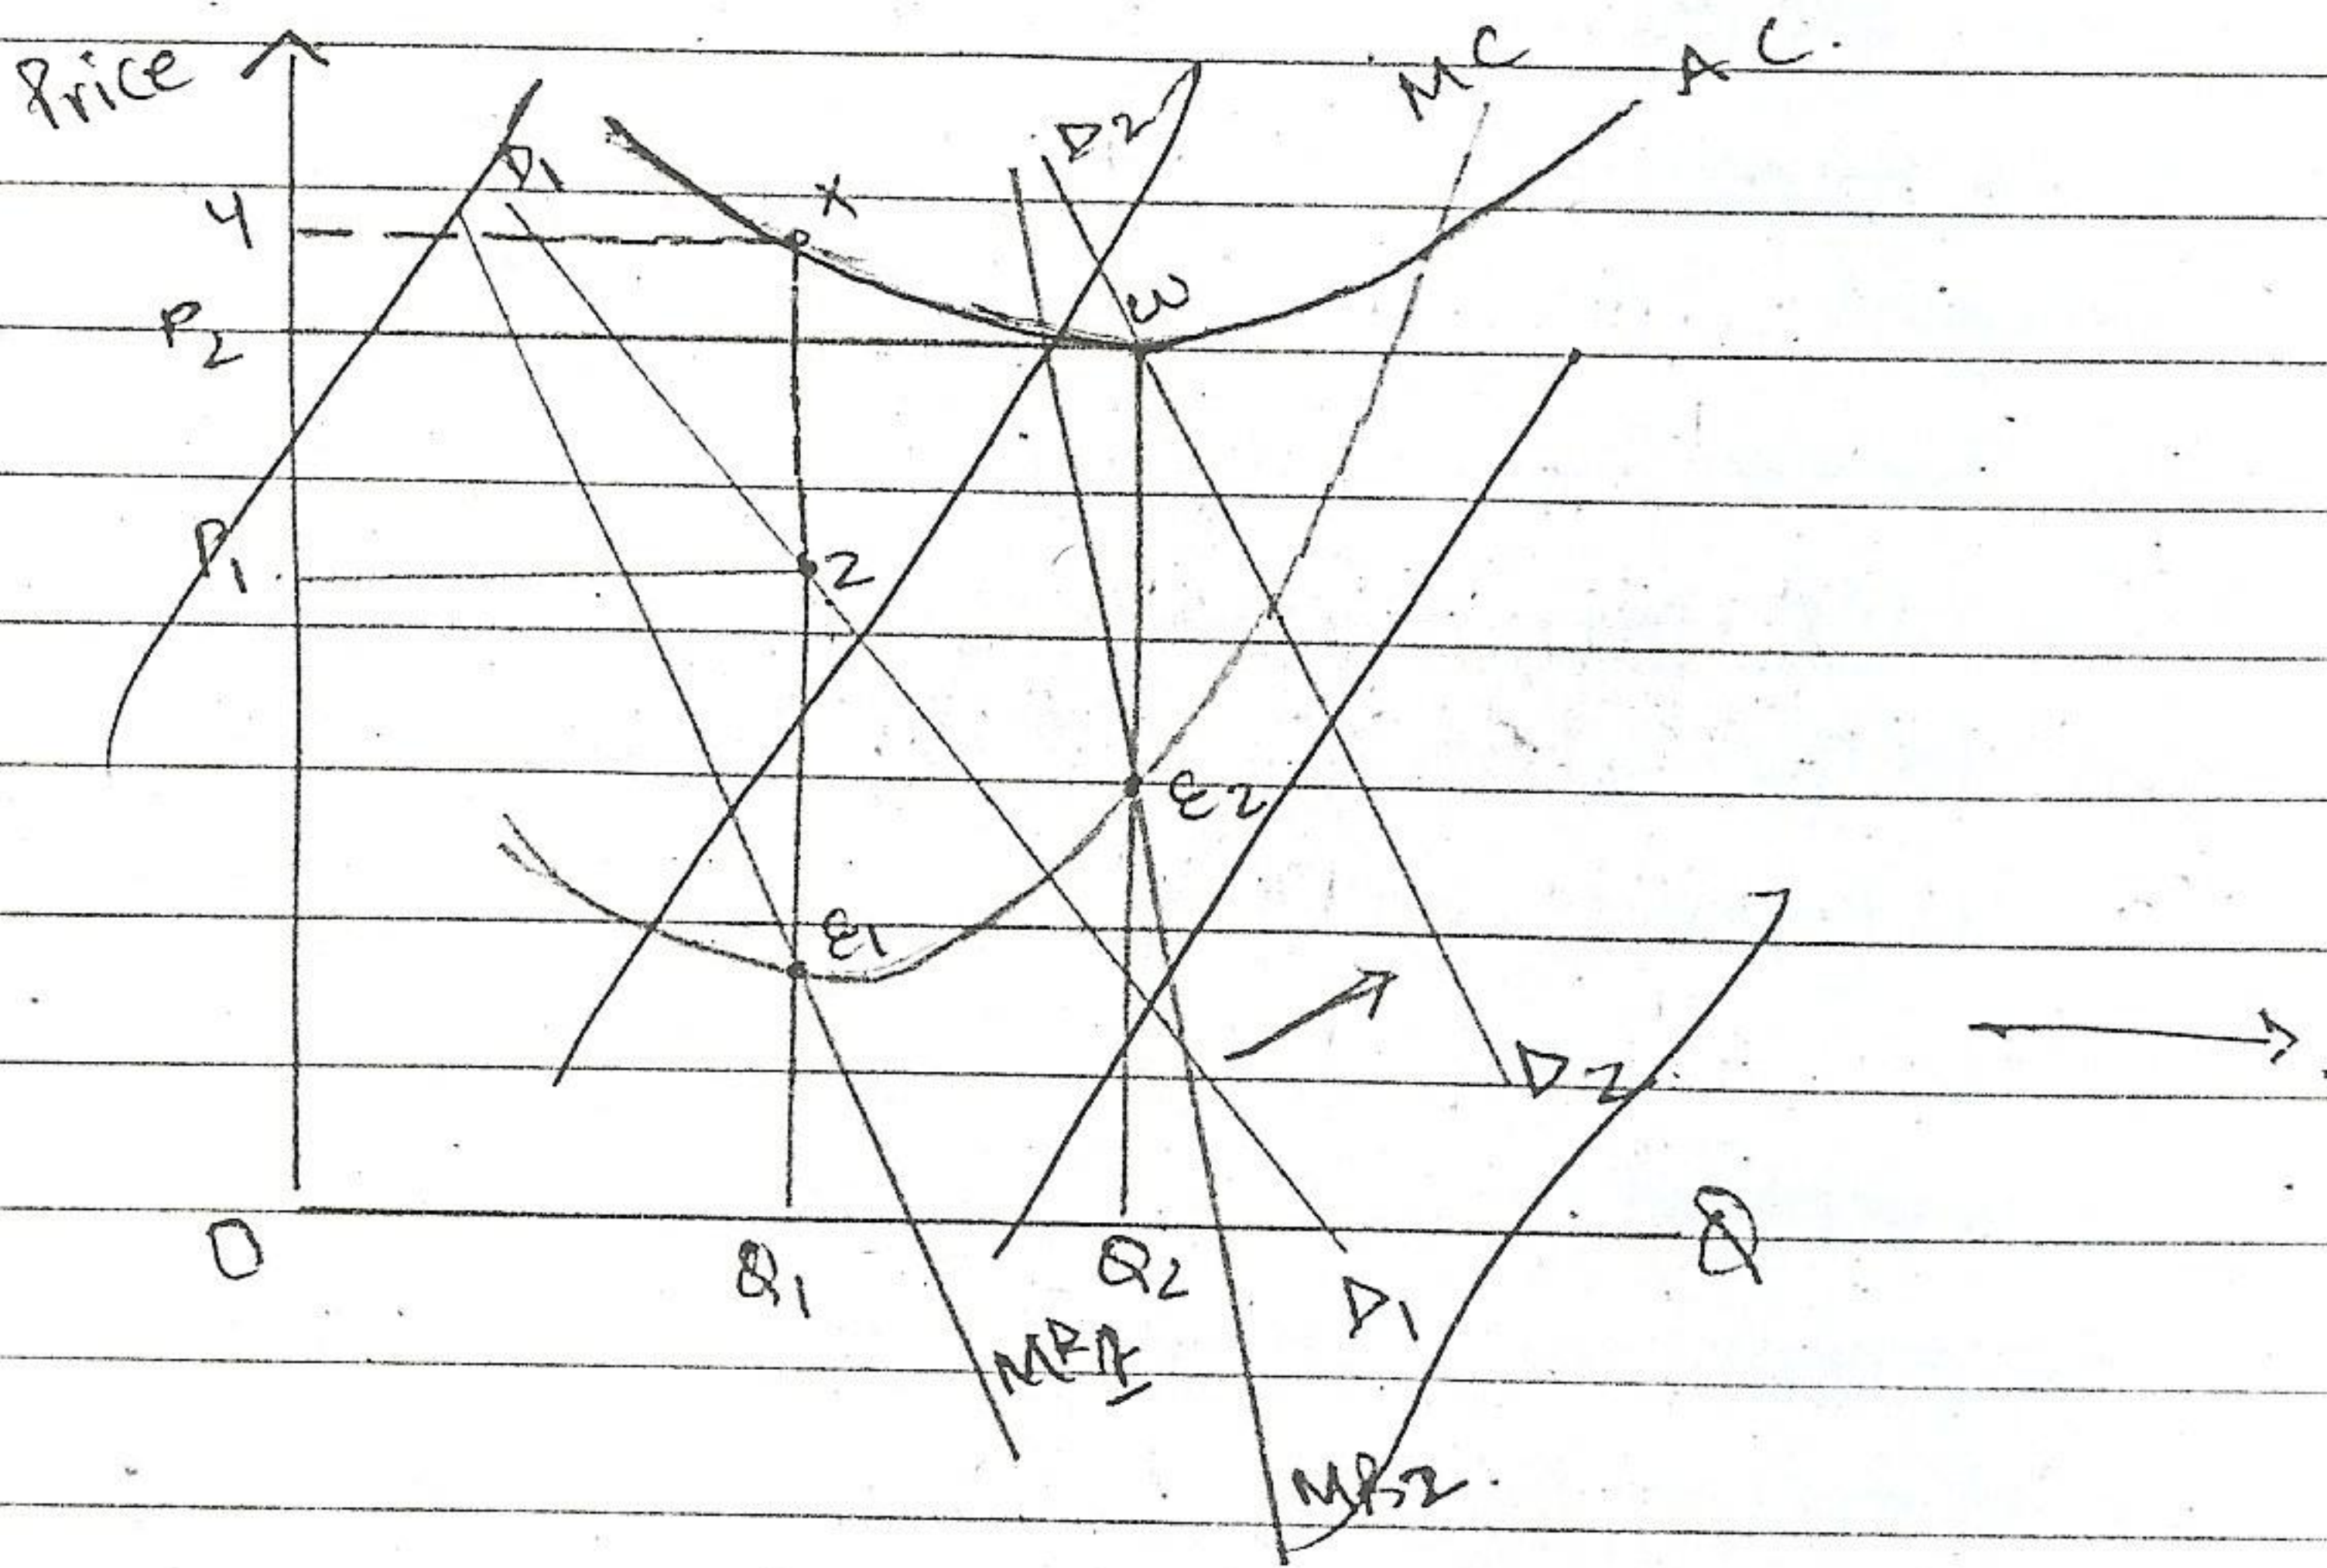 Price
MC
AC.
D2
D1
X
Y
W
P2
P1
Z
E2
E1
D2
O
Q1
Q2
Q
D1
MR1
MR2.